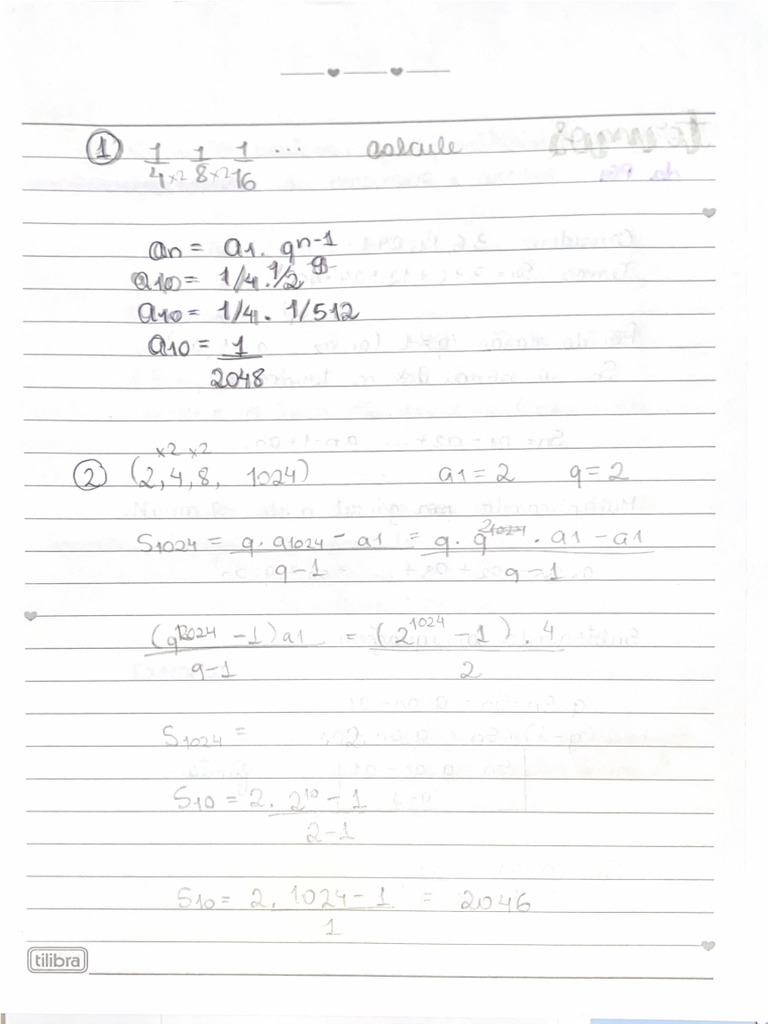 ① 1/4 ×2 1/8 ×2 1/16 ... calcule
an = a1 . q^n-1
a10 = 1/4 . 1/2^9
a10 = 1/4 . 1/512
a10 = 1/2048
×2 ×2
② (2, 4, 8, 1024) a1 = 2 q = 2
S1024 = q . a1024 - a1 / q - 1 = q . q^1024 . a1 - a1 / q - 1
(q^1024 - 1) a1 / q - 1 = (2^1024 - 1) . 4 / 2
S1024 =
S10 = 2 . 2^10 - 1 / 2 - 1
S10 = 2 . 1024 - 1 / 1 = 2046
tilibra